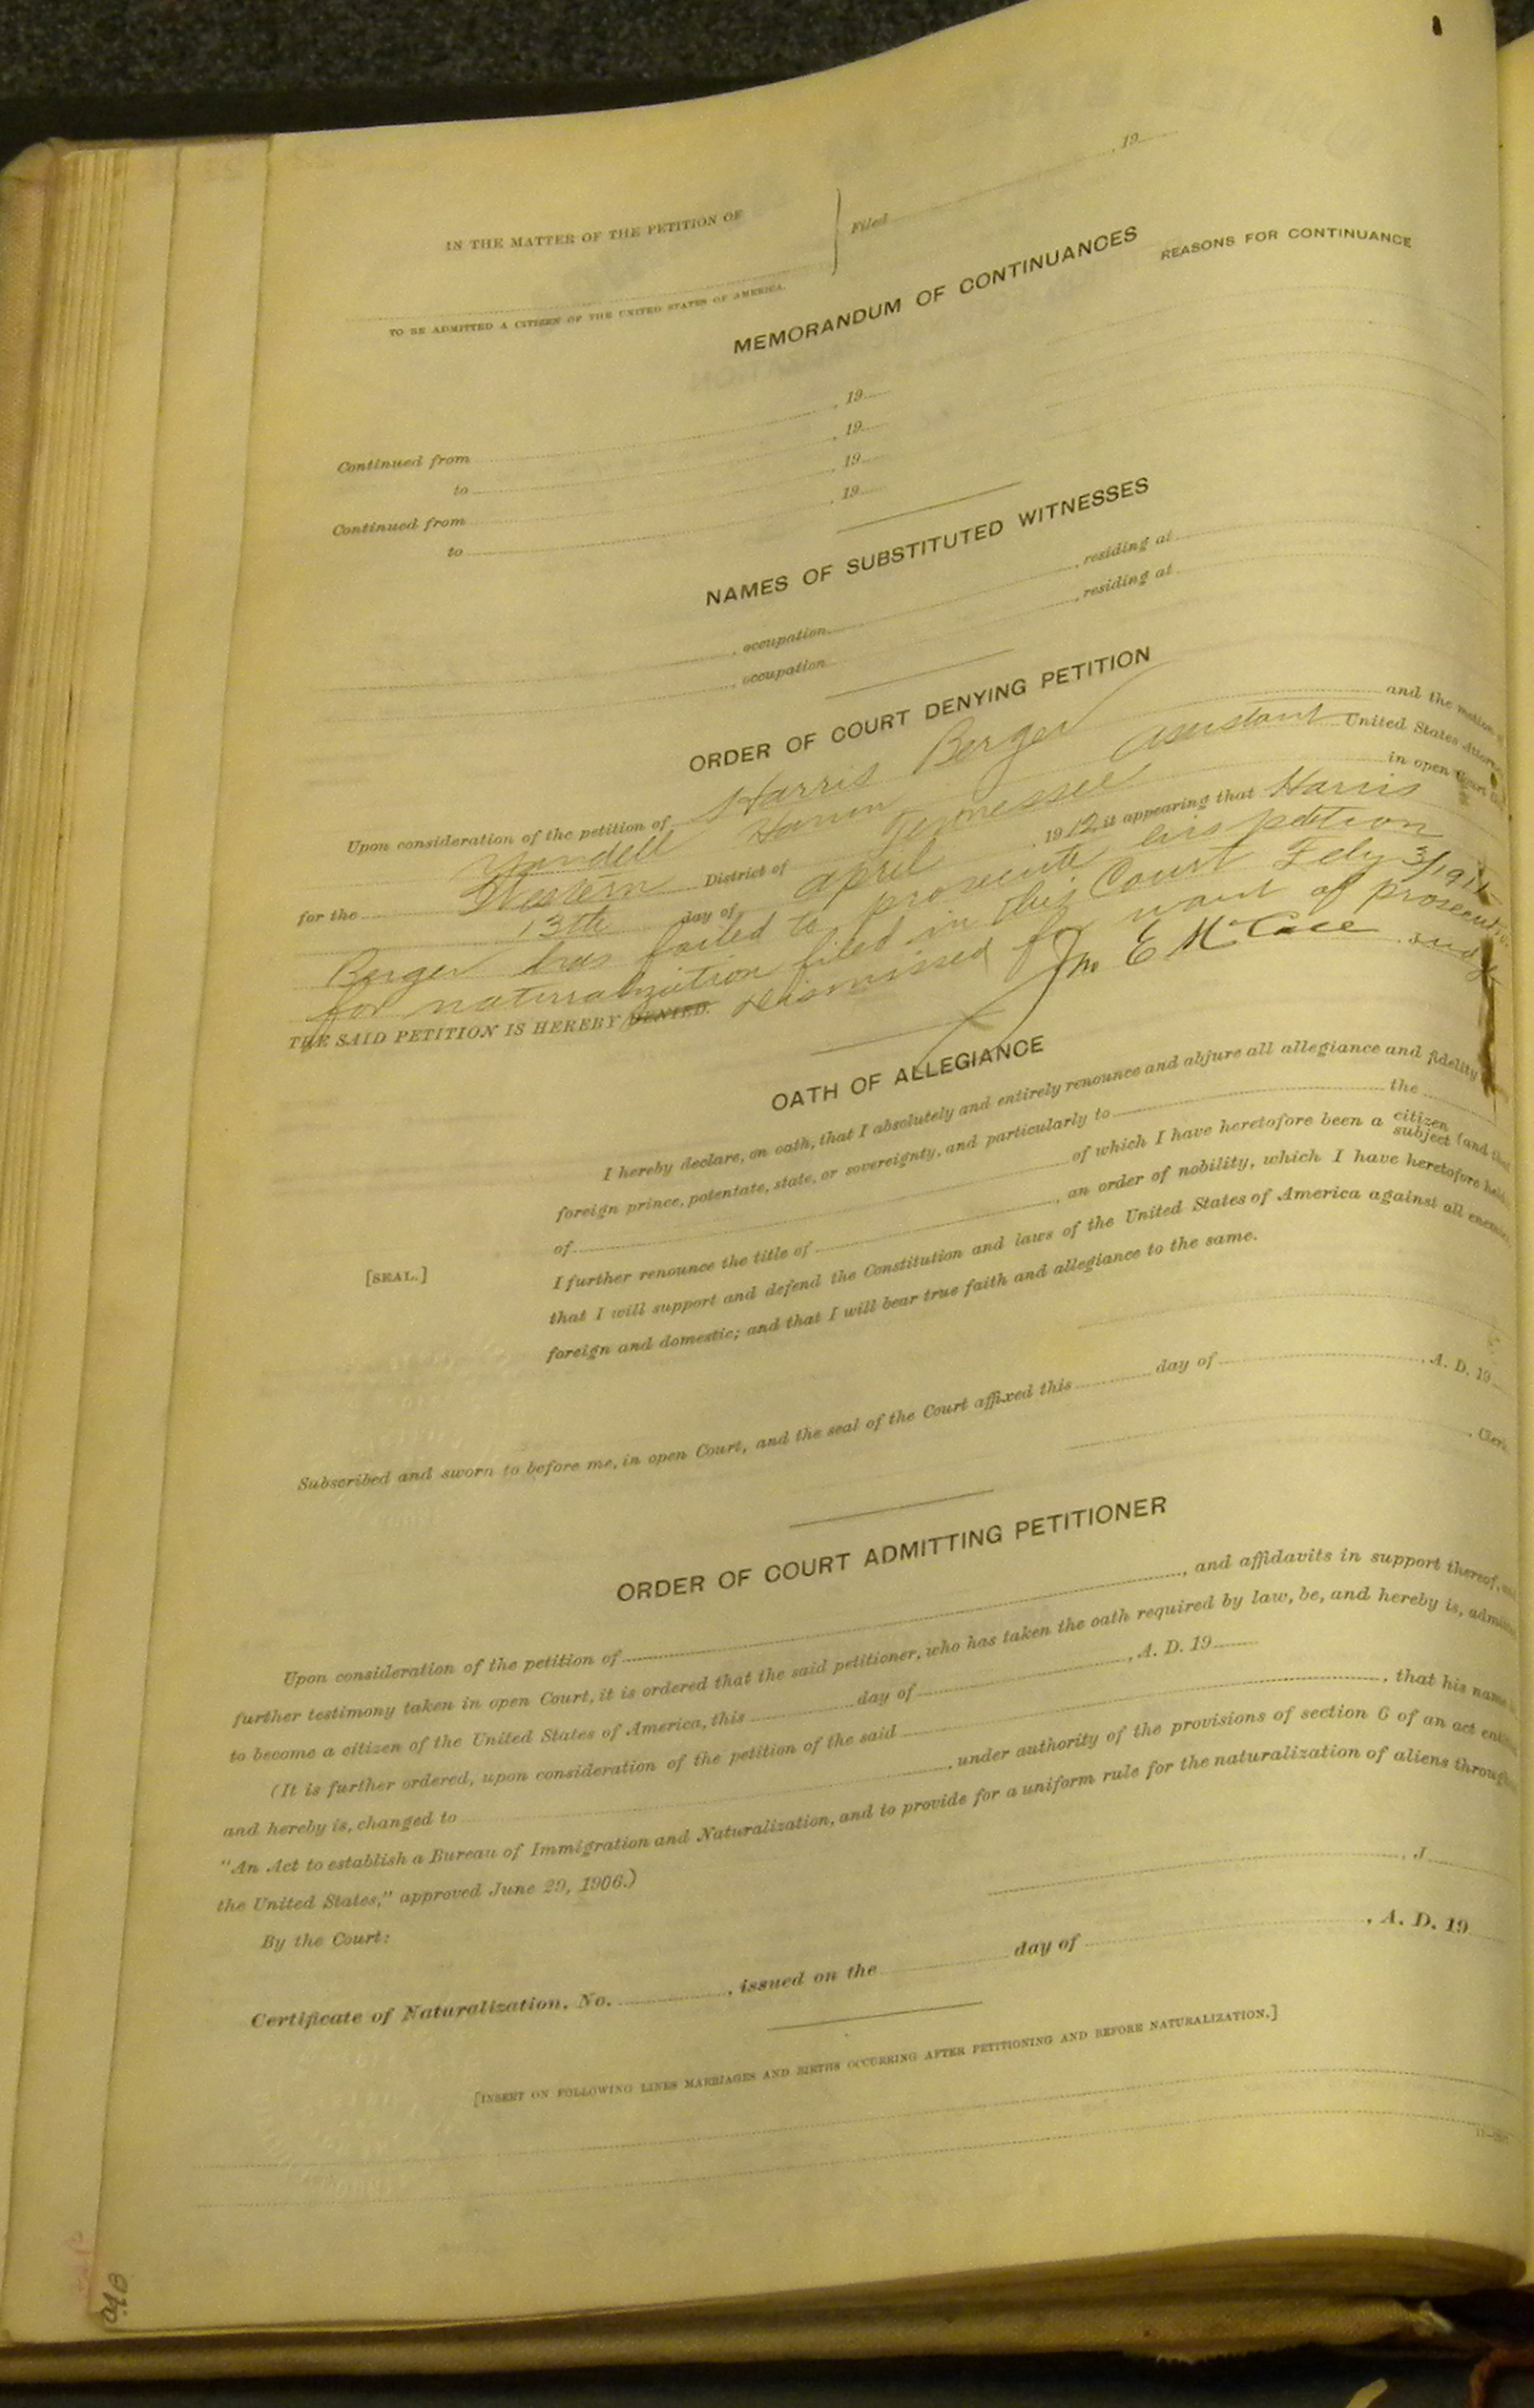 IN THE MATTER OF THE PETITION OF
Filed , 19
TO BE ADMITTED A CITIZEN OF THE UNITED STATES OF AMERICA.
MEMORANDUM OF CONTINUANCES
REASONS FOR CONTINUANCE
Continued from , 19
to , 19
Continued from , 19
to , 19
NAMES OF SUBSTITUTED WITNESSES
, occupation , residing at
, occupation , residing at
ORDER OF COURT DENYING PETITION
Upon consideration of the petition of Harris Berger and the motion of
Yandell Haun assistant United States Attorney
for the Western District of Tennessee in open Court this
13th day of april , 1912, it appearing that Harris
Berger has failed to prosecute his petition
for naturalization filed in this Court Feby 3/191
THE SAID PETITION IS HEREBY DENIED. dismissed for want of prosecution
Jno E McCall Judge
OATH OF ALLEGIANCE
I hereby declare, on oath, that I absolutely and entirely renounce and abjure all allegiance and fidelity
foreign prince, potentate, state, or sovereignty, and particularly to the
of of which I have heretofore been a citizen subject (and that
I further renounce the title of , an order of nobility, which I have heretofore held
that I will support and defend the Constitution and laws of the United States of America against all enemies,
foreign and domestic; and that I will bear true faith and allegiance to the same.
[SEAL.]
Subscribed and sworn to before me, in open Court, and the seal of the Court affixed this day of , A. D. 19
, Clerk
ORDER OF COURT ADMITTING PETITIONER
Upon consideration of the petition of , and affidavits in support thereof, and
further testimony taken in open Court, it is ordered that the said petitioner, who has taken the oath required by law, be, and hereby is, admitted
to become a citizen of the United States of America, this day of , A. D. 19
(It is further ordered, upon consideration of the petition of the said , that his name
and hereby is, changed to , under authority of the provisions of section 6 of an act entitled
"An Act to establish a Bureau of Immigration and Naturalization, and to provide for a uniform rule for the naturalization of aliens through
the United States," approved June 29, 1906.)
By the Court:
, J
Certificate of Naturalization, No. , issued on the day of , A. D. 19
[INSERT ON FOLLOWING LINES MARRIAGES AND BIRTHS OCCURRING AFTER PETITIONING AND BEFORE NATURALIZATION.]